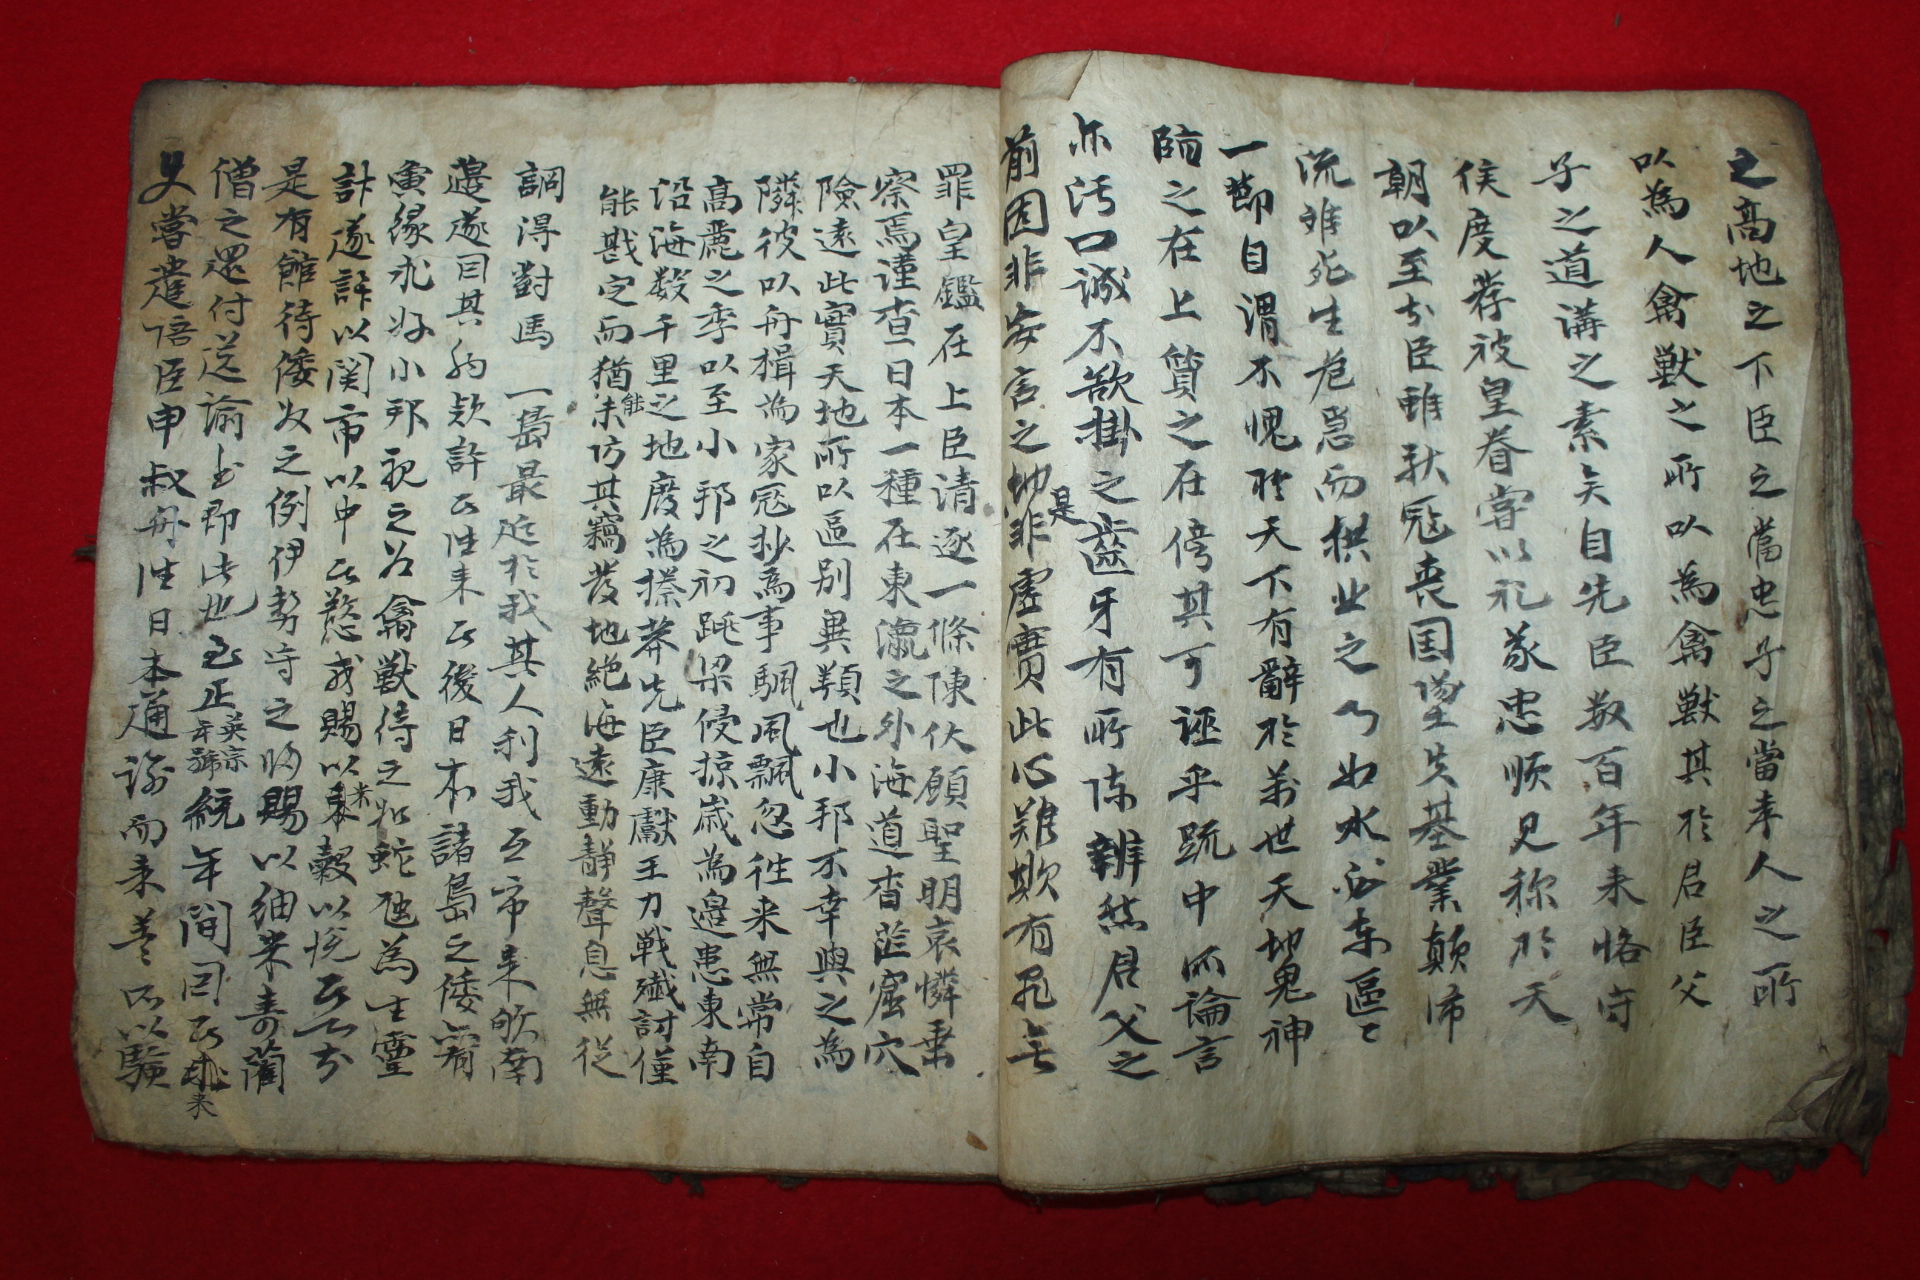 之高地之下臣之當忠子之當孝人之所
以為人禽獸之所以為禽獸其於君臣父
子之道講之素矣自先臣数百年来恪守
侯度荐被皇眷嘗以礼義忠順見称於天
朝以至于臣雖猝寇喪国墜失基業顛沛
流離死生危急而拱北之心如水必东區〻
一節自謂不愧於天下有辭於萬世天地鬼神
臨之在上質之在傍其可誣乎疏中所論言
亦汚口誠不欲掛之齒牙有所陈辨然君父之
前因非妄言之地非是虛實此心難欺有死無
罪皇鑑在上臣请逐一條陳伏願聖明哀憐垂
察焉謹查日本一種在東瀛之外海道杳茫窟穴
險遠此實天地所以區别異類也小邦不幸與之為
隣彼以舟楫為家寇抄為事颿風飄忽往来無常自
高麗之季以至小邦之初跳梁侵掠歲為邊患東南
沿海数千里之地廢為榛莽先臣康獻王力戦殲討僅
能戡定而猶未能防其竊發地絶海遠動静聲息無従
調得對馬一島最近於我其人利我互市来欵南
邊遂因其納欵許其往来其後日本諸島之倭亦有
夤緣求好小邦視之为禽獸待之如蛇虺為生靈
計遂許以関市以中其慾或賜以米穀以悦其心於
是有館待倭奴之例伊勢守之賜賜以紬米寿藺
僧之還付送諭书即此也至正英宗年號統年間因其求来
又嘗遣陪臣申叔舟往日本通諭而来盖所以驗